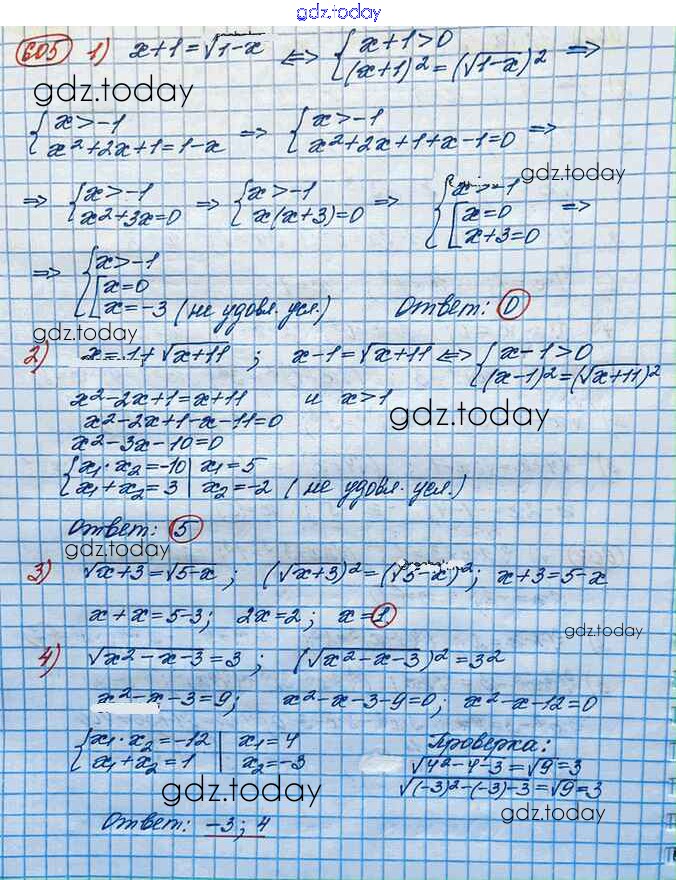 gdz.today
605 1) x+1=√1-x ⇔ { x+1>0
(x+1)²=(√1-x)² ⇒
gdz.today
{ x>-1
x²+2x+1=1-x ⇒ { x>-1
x²+2x+1+x-1=0 ⇒
gdz.today
⇒ { x>-1
x²+3x=0 ⇒ { x>-1
x(x+3)=0 ⇒ { x>-1
[ x=0
x+3=0 ⇒
⇒ { x>-1
[ x=0
x=-3 (не удовл. усл.) Ответ: 0
gdz.today
2) x=1+√x+11 ; x-1=√x+11 ⇔ { x-1>0
(x-1)²=(√x+11)²
x²-2x+1=x+11 и x>1
gdz.today
x²-2x+1-x-11=0
x²-3x-10=0
{ x₁·x₂=-10 | x₁=5
x₁+x₂=3 | x₂=-2 (не удовл. усл.)
Ответ: 5
gdz.today
3) √x+3=√5-x ; (√x+3)²=(√5-x)²; x+3=5-x
x+x=5-3; 2x=2; x=1
gdz.today
4) √x²-x-3=3 ; (√x²-x-3)²=3²
x²-x-3=9; x²-x-3-9=0; x²-x-12=0
{ x₁·x₂=-12 | x₁=4
x₁+x₂=1 | x₂=-3
Проверка:
√4²-4-3=√9=3
√(-3)²-(-3)-3=√9=3
gdz.today
gdz.today
Ответ: -3; 4